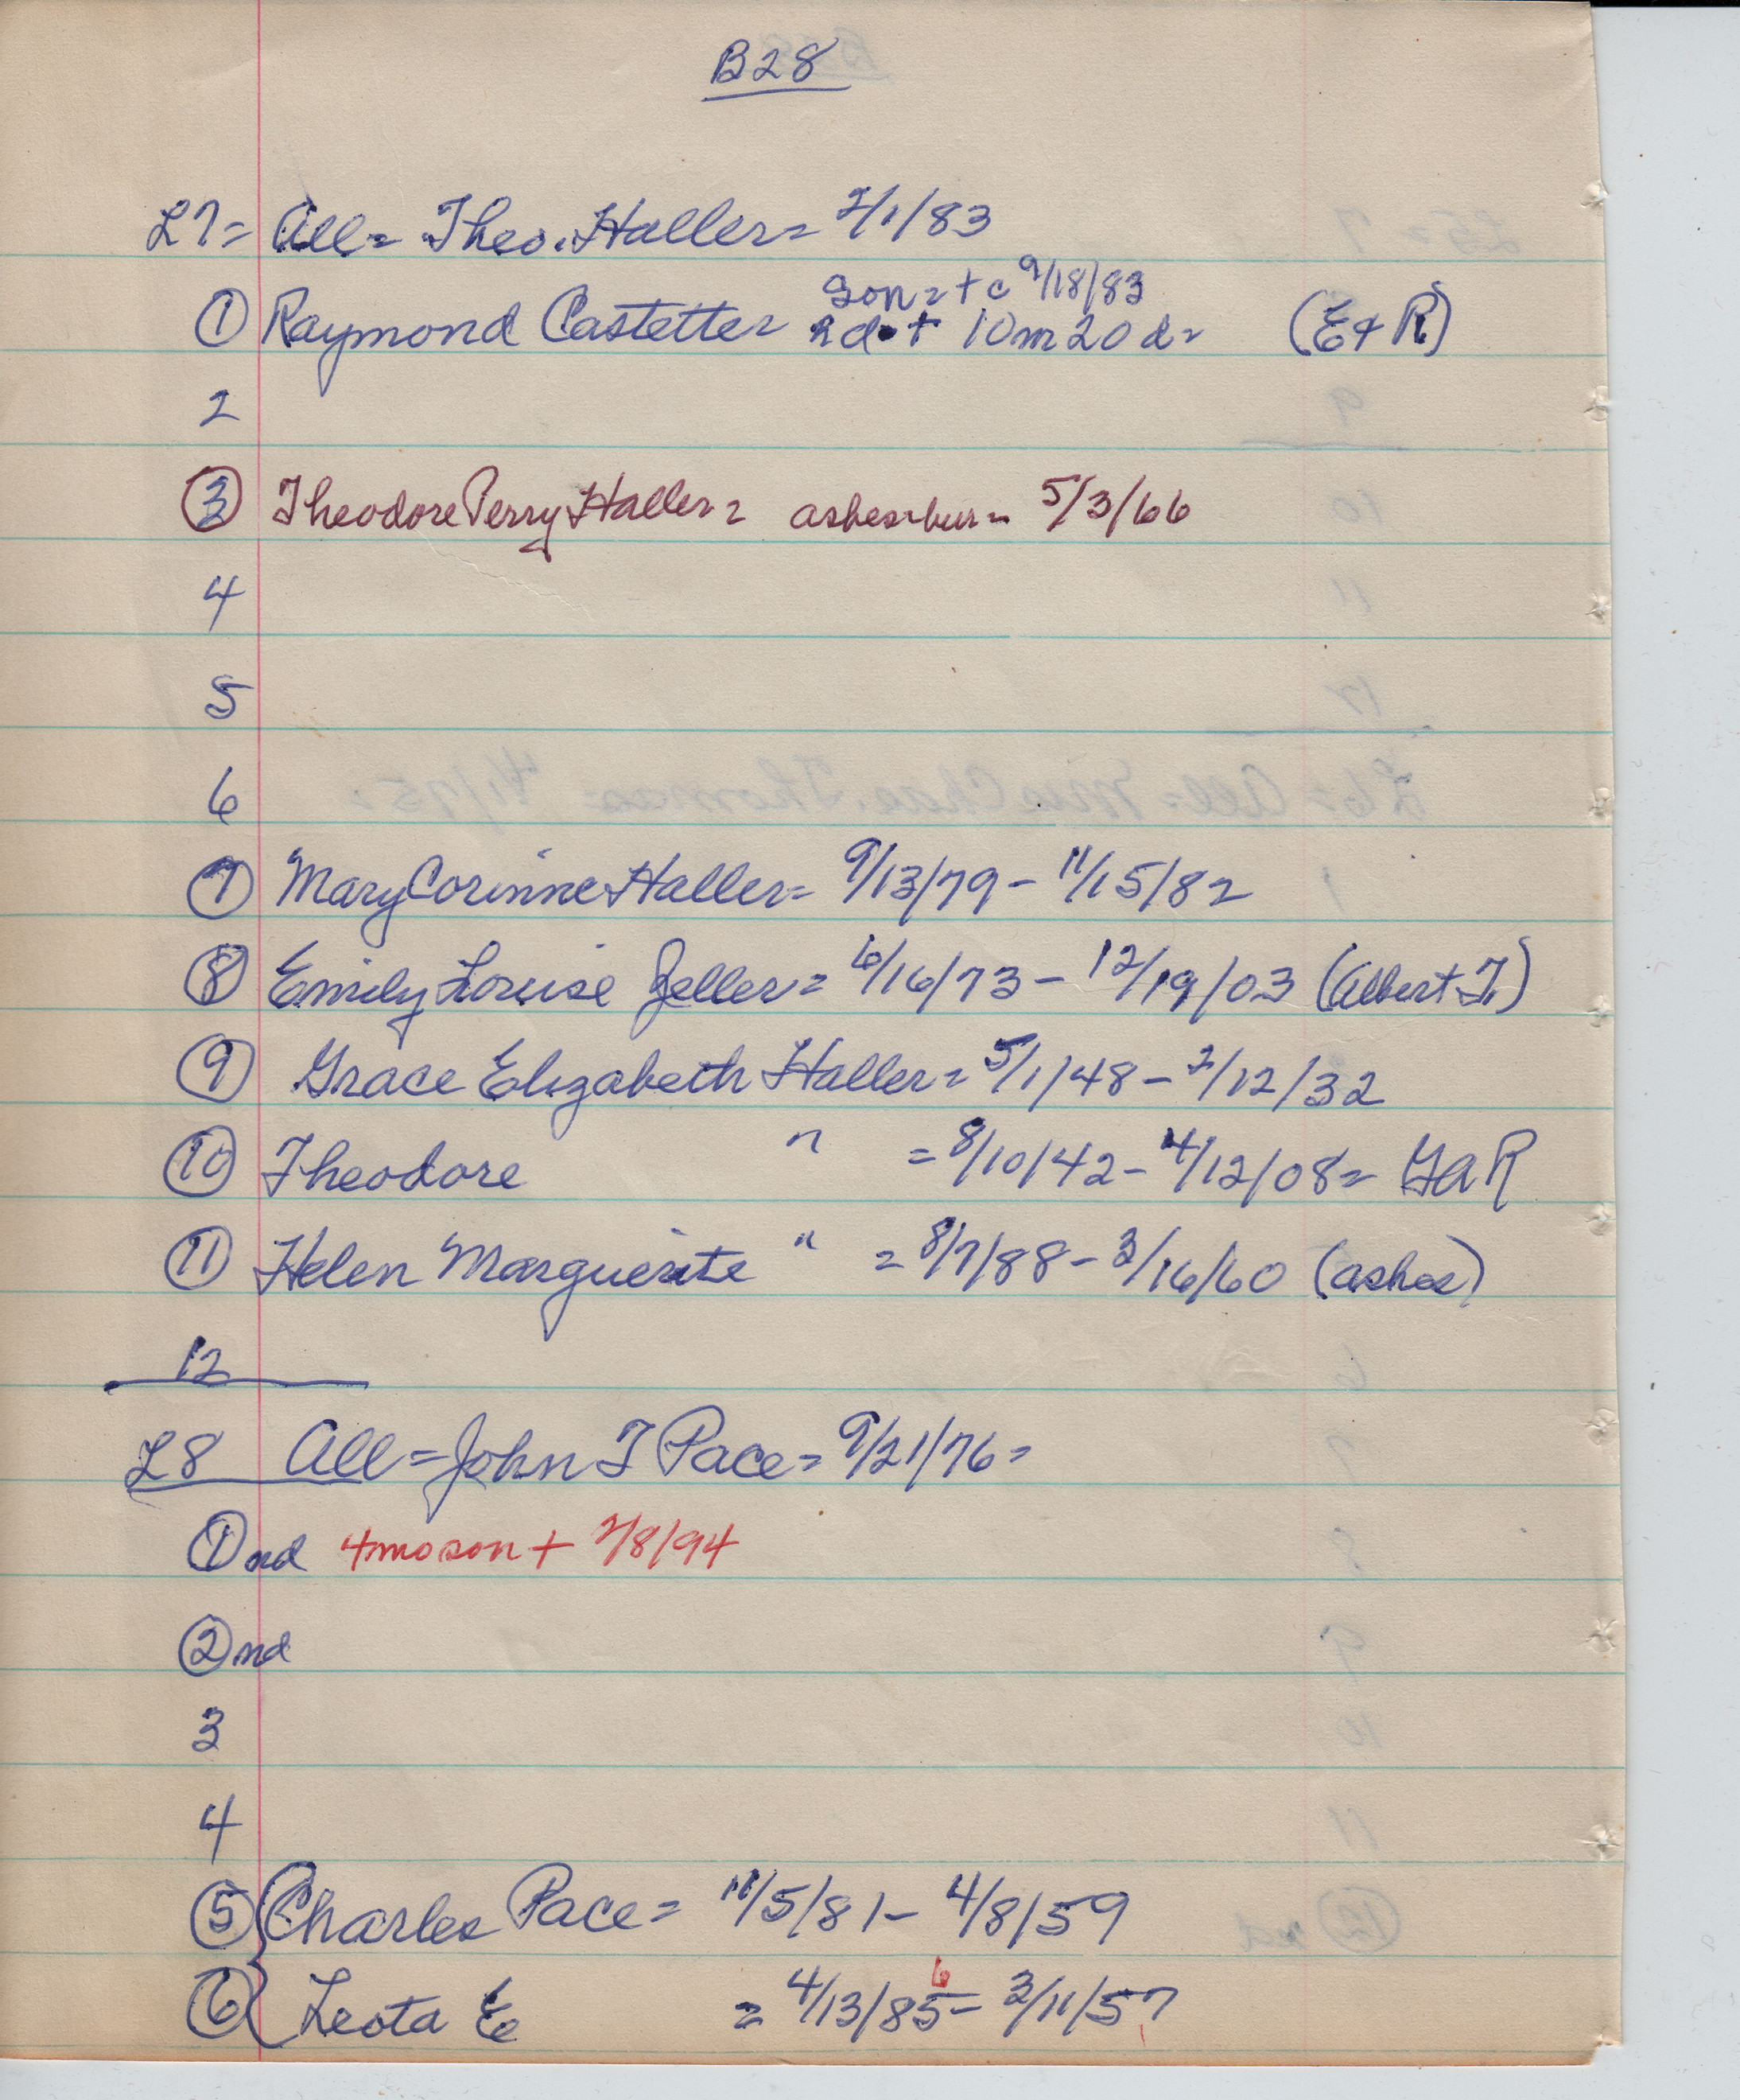 B28
L7= All= Theo. Haller= 2/1/83
son= + c 9/18/83
① Raymond Castetter 2d + 10m 20d= (E+R)
2
③ Theodore Perry Haller= ashes bur= 5/3/66
4
5
6
⑦ Mary Corinne Haller= 9/13/79 - 11/15/82
⑧ Emily Louise Zeller= 6/16/73 - 12/19/03 (Albert F.)
⑨ Grace Elizabeth Haller= 5/1/48 - 2/12/32
⑩ Theodore " = 8/10/42 - 4/12/08= GAR
⑪ Helen Marguerite " = 8/7/88 - 3/16/60 (ashes)
12
L8 All = John T Pace= 9/21/76=
① nd 4 mo son + 2/8/94
② nd
3
4
⑤ Charles Pace= 11/5/81 - 4/8/59
6
⑥ Leota E = 4/13/85 - 3/11/57